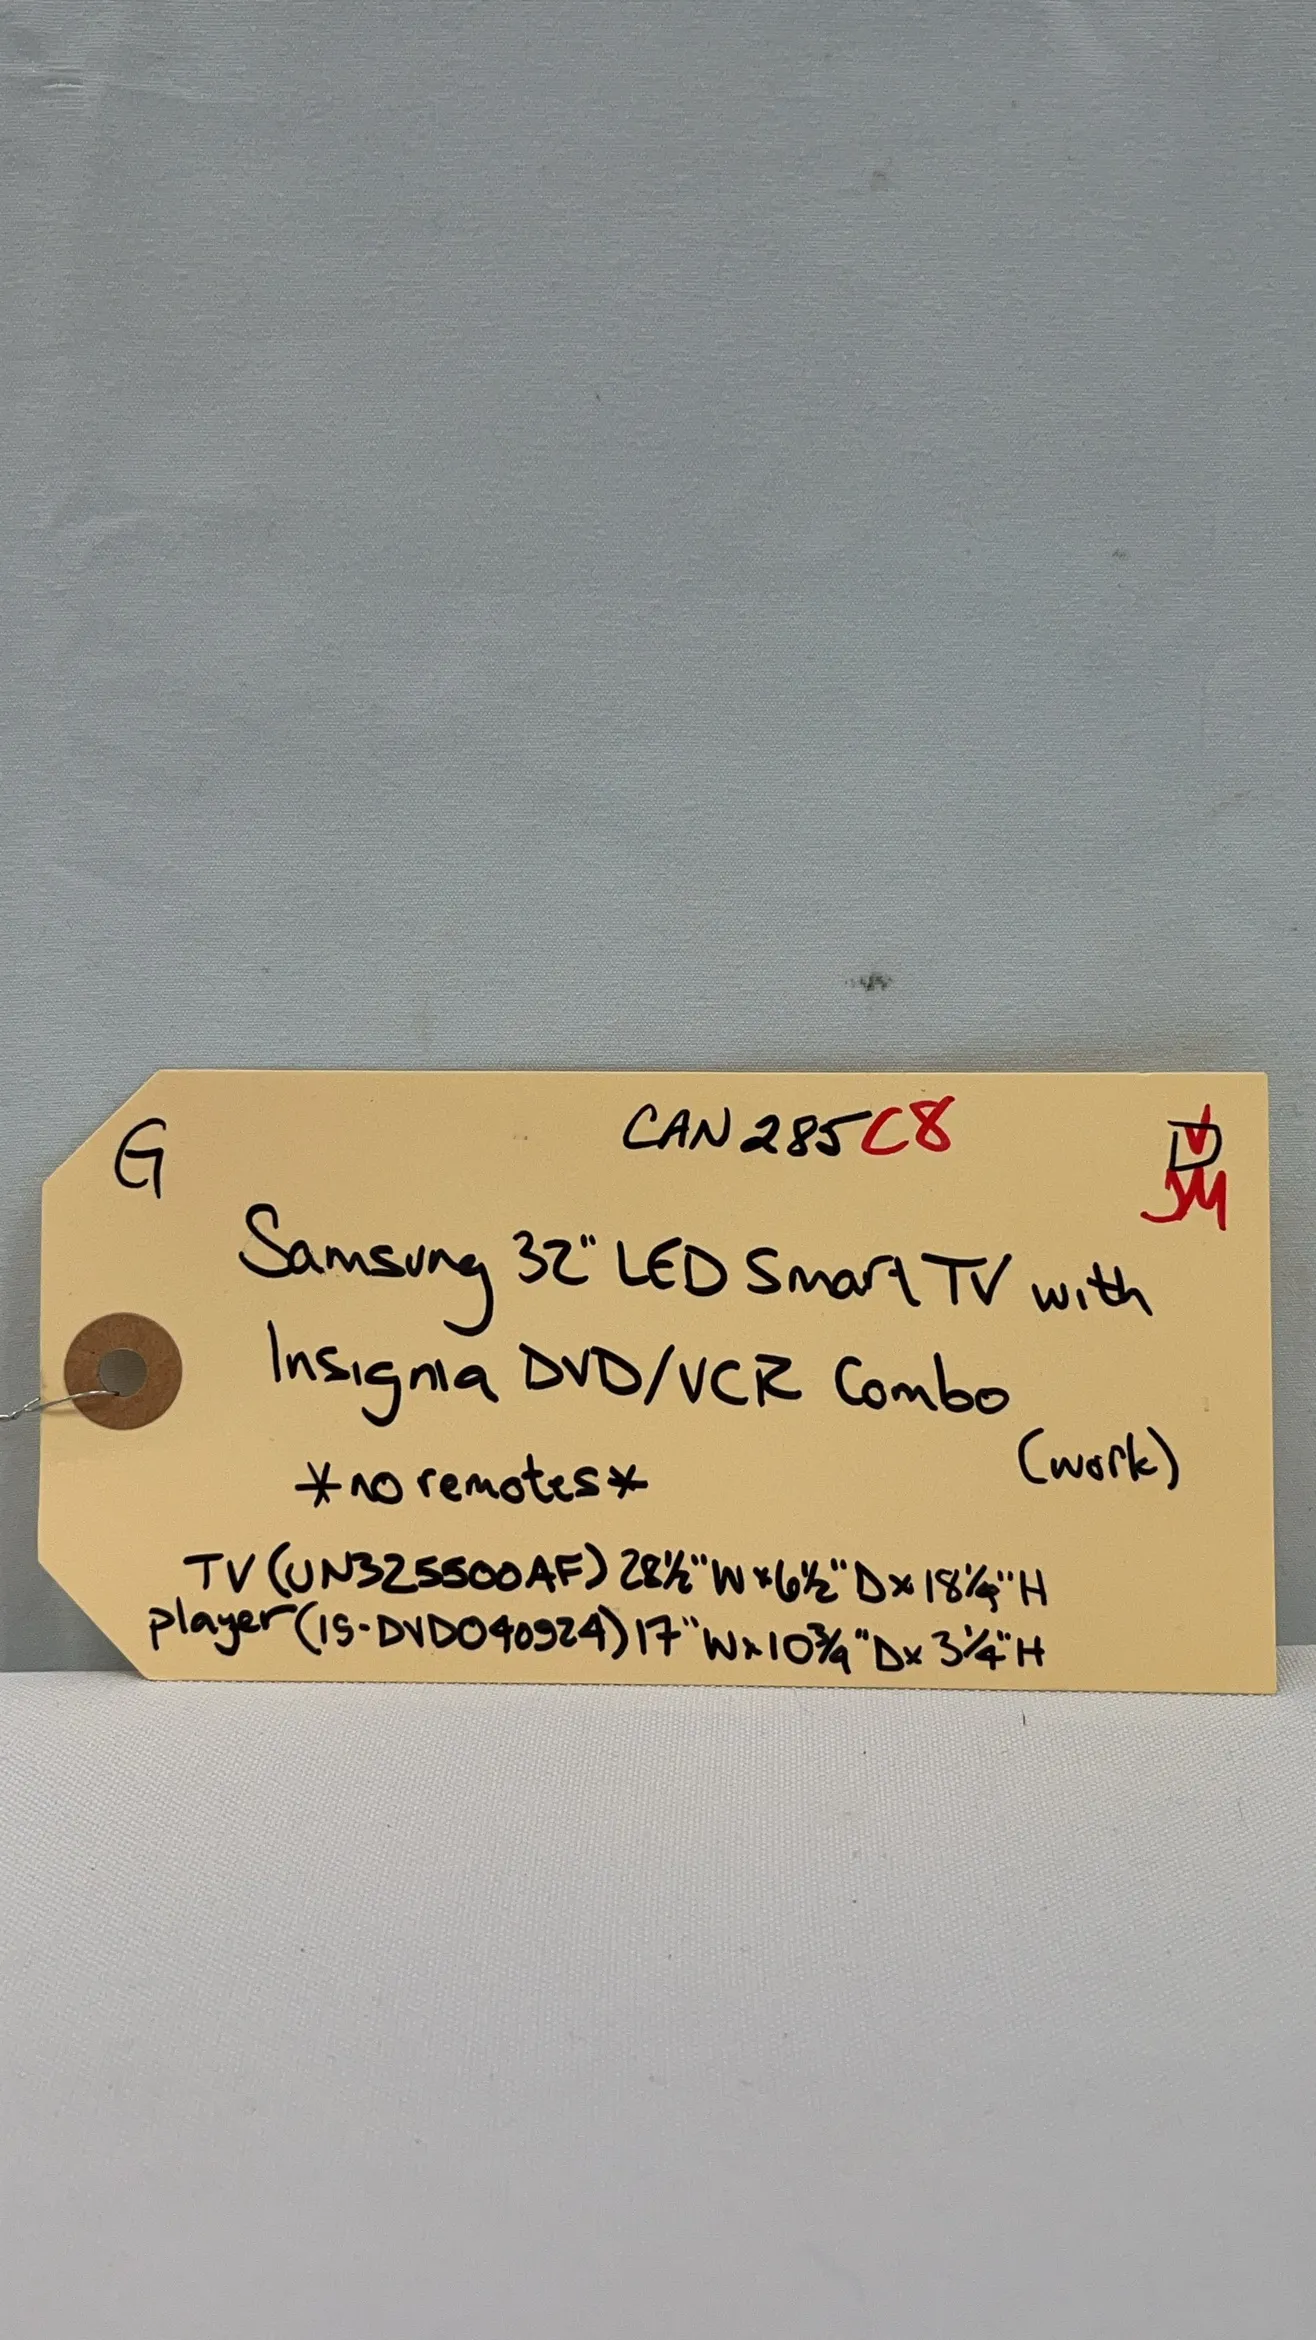 G
CAN285C8
D
V
JM
Samsung 32" LED Smart TV with
Insignia DVD/VCR Combo
(work)
*no remotes*
TV (UN325500AF) 28½"W x 6½"D x 18¼"H
player (IS-DVD040924) 17"W x 10¾"D x 3¼"H